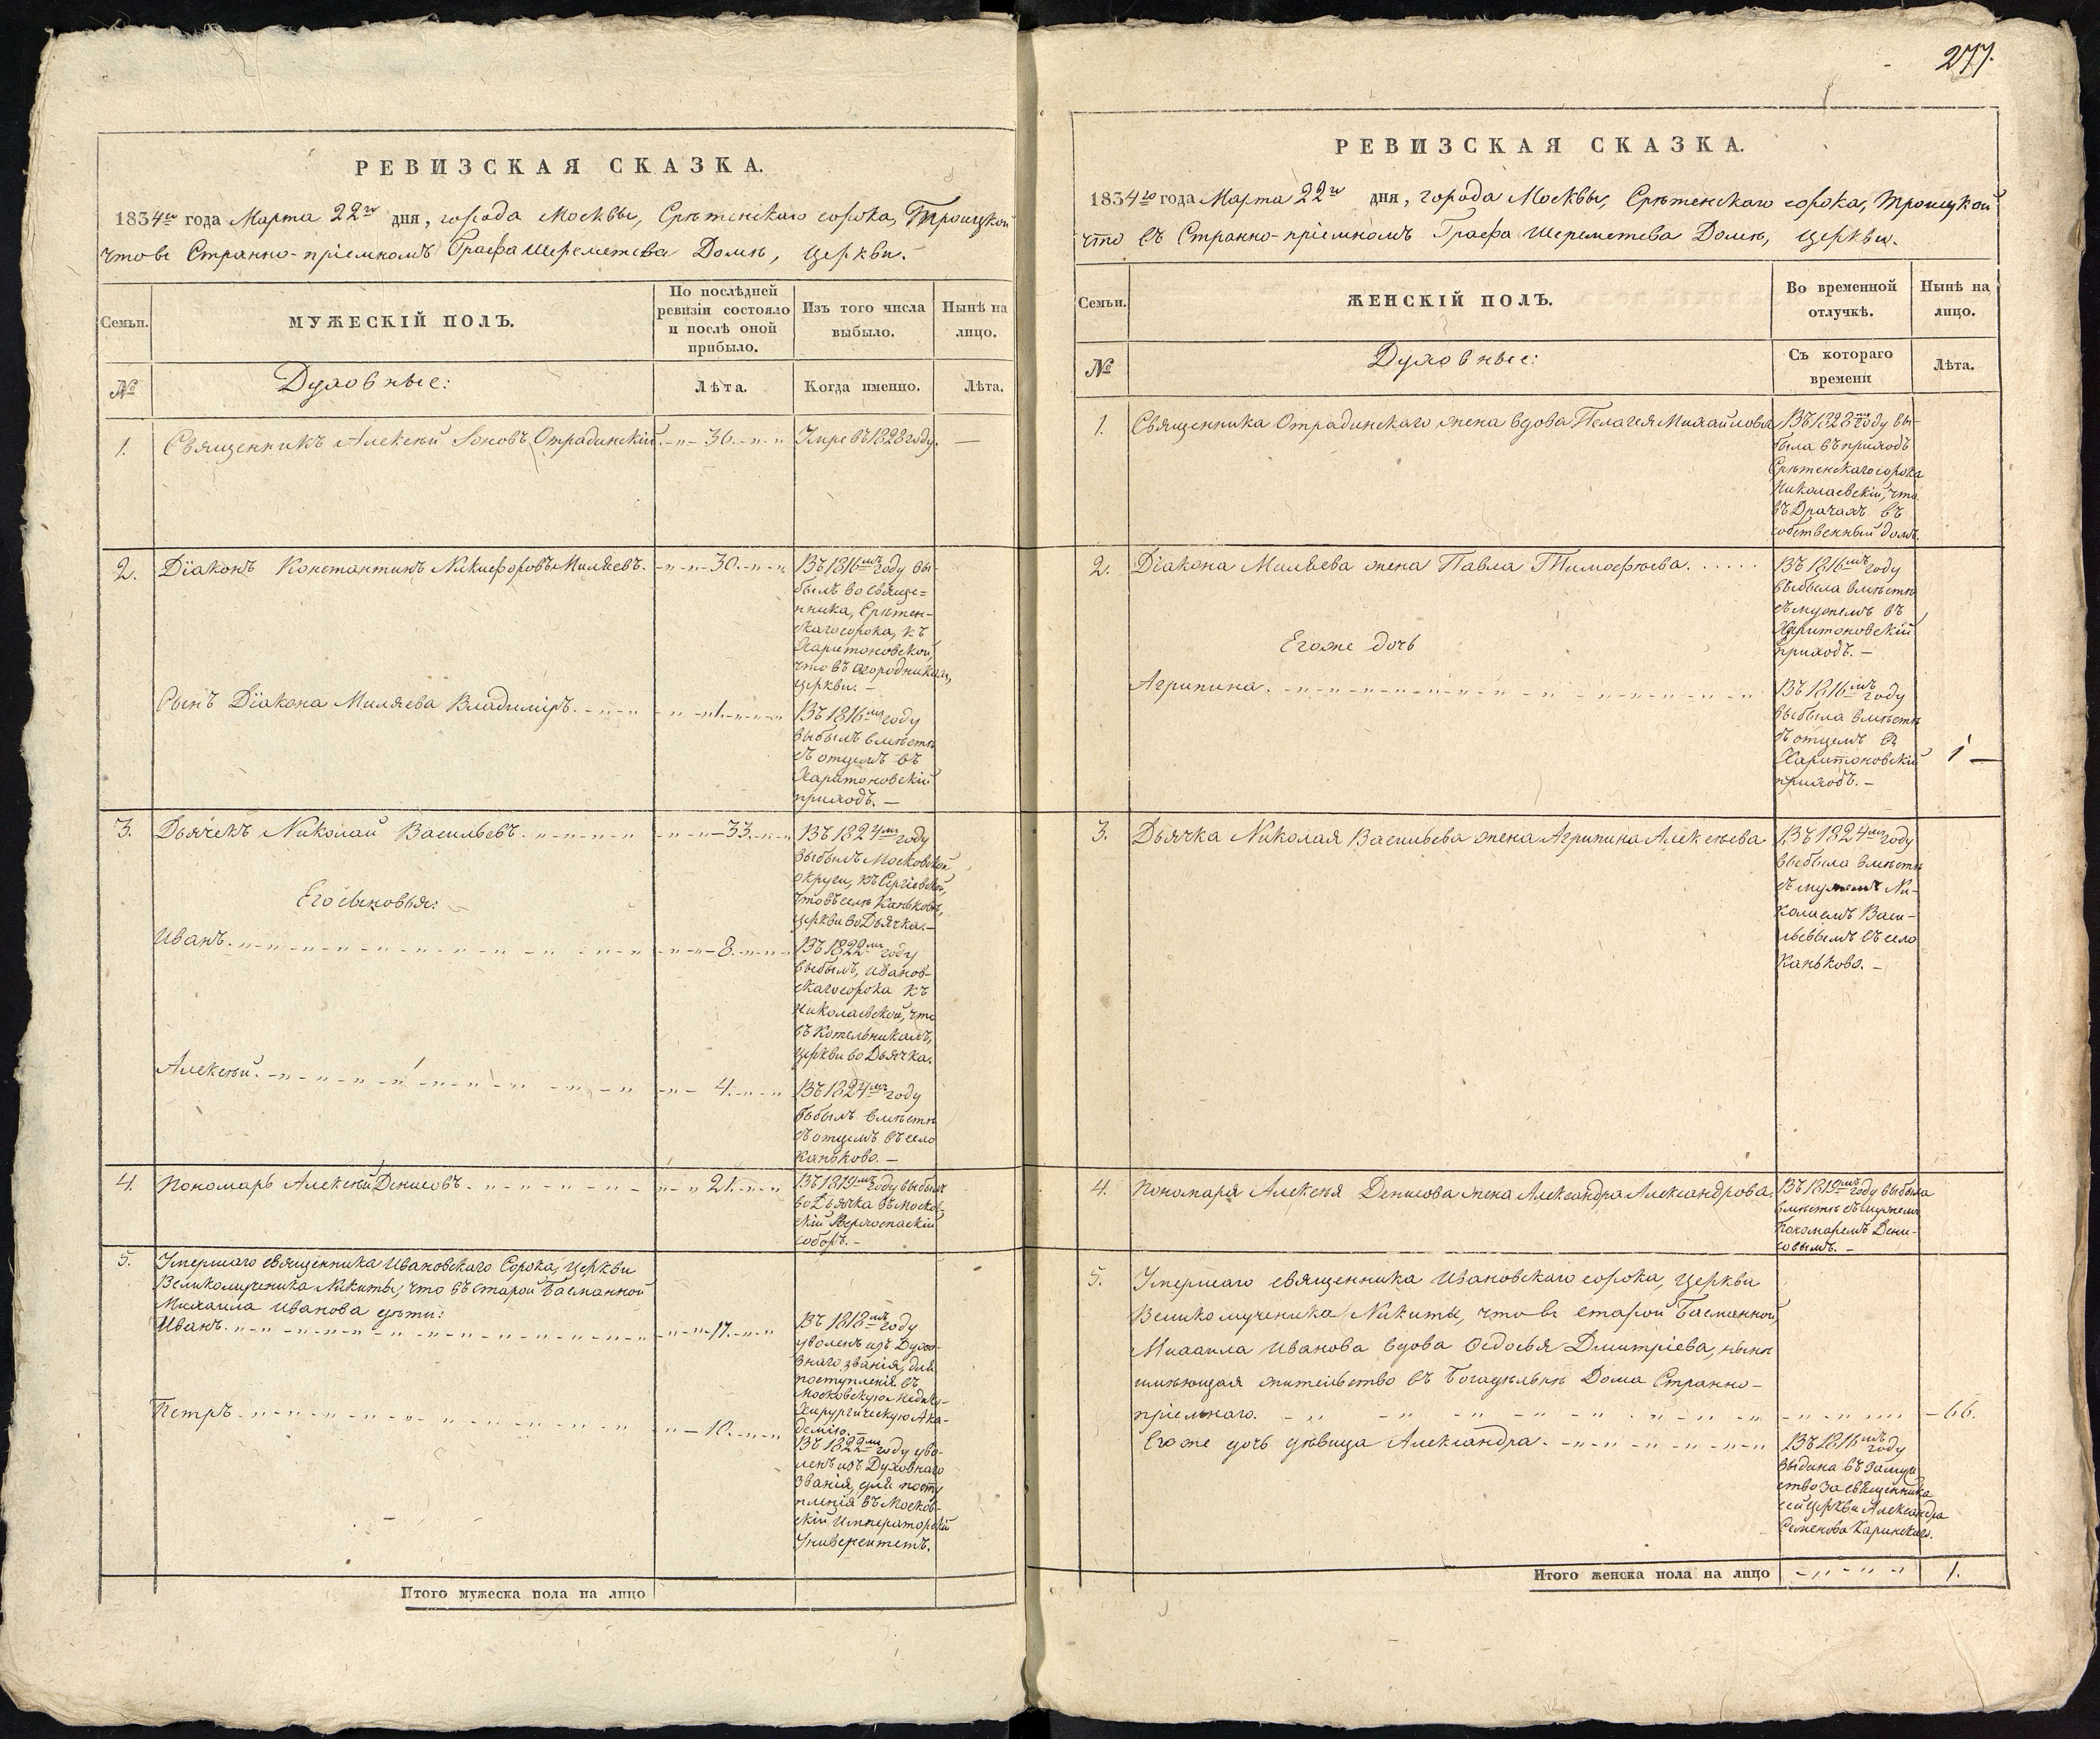 РЕВИЗСКАЯ СКАЗКА.
1834го года Марта 22го дня, города Москвы, Срѣтенскаго сорока, Троицкой
что въ Странно-пріемномъ Графа Шереметева Домѣ, церкви.
Семьи.
МУЖЕСКІЙ ПОЛЪ.
По послѣдней
ревизіи состояло
и послѣ оной
прибыло.
Изъ того числа
выбыло.
Нынѣ на
лицо.
№
Духовные:
Лѣта.
Когда именно.
Лѣта.
1. Священникъ Алексѣй Іоновъ Отрадинскій. 36. Умре въ 1828 году. —
2. Діаконъ Константинъ Никифоровъ Миляевъ. 30.
Въ 1816мъ году вы-
былъ во священ-
ника, Срѣтен-
скаго сорока, къ
Харитоновской,
что въ Огородникахъ,
церкви. —
Сынъ Діакона Миляева Владиміръ. 1.
Въ 1816мъ году
выбылъ вмѣстѣ
съ отцемъ въ
Харитоновскій
приходъ. —
3. Дьячекъ Николай Васильевъ. 33.
Въ 1824мъ году
выбылъ Московской
округи, къ Сергіевской,
что въ селѣ Каньковѣ,
церкви во Дьячка. —
Его сыновья:
Иванъ. 8.
Въ 1822мъ году
выбылъ, Иванов-
скаго сорока къ
Николаевской, что
въ Котельникахъ,
церкви во Дьячка.
Алексѣй. 4.
Въ 1824мъ году
выбылъ вмѣстѣ
съ отцемъ въ село
Каньково. —
4. Пономарь Алексѣй Денисовъ. 21.
Въ 1819мъ году выбылъ
во Дьячка въ Москов-
скій Верхоспаскій
соборъ. —
5. Умершаго священника Ивановскаго Сорока, церкви
Великомученика Никиты, что въ Старой Басманной
Михаила Иванова дѣти:
Иванъ. 17.
Въ 1818мъ году
уволенъ изъ Духов-
наго званія, для
поступленія въ
Московскую Медико-
Хирургическую Ака-
демію. —
Петръ. 10.
Въ 1822мъ году уво-
ленъ изъ Духовнаго
званія, для посту
пленія въ Москов-
скій Императорскій
Университетъ.
Итого мужеска пола на лицо
277.
РЕВИЗСКАЯ СКАЗКА.
1834го года Марта 22го дня, города Москвы, Срѣтенскаго сорока, Троицкой
что въ Странно-пріемномъ Графа Шереметева Домѣ, церкви.
Семьи.
ЖЕНСКІЙ ПОЛЪ.
Во временной
отлучкѣ.
Нынѣ на
лицо.
№
Духовные:
Съ котораго
времени
Лѣта.
1. Священника Отрадинскаго жена вдова Пелагея Михайлова
Въ 1828мъ году вы-
была въ приходъ
Срѣтенскаго сорока
Николаевскій, что
въ Драчахъ въ
собственный домъ.
2. Діакона Миляева жена Павла Тимофѣева.
Въ 1816мъ году
выбыла вмѣстѣ
съ мужемъ въ
Харитоновскій
приходъ. —
Его же дочь
Агрипина.
Въ 1816мъ году
выбыла вмѣстѣ
съ отцемъ въ
Харитоновскій
приходъ. —
1 —
3. Дьячка Николая Васильева жена Агрипина Алексѣева
Въ 1824мъ году
выбыла вмѣстѣ
съ мужемъ Ни-
колаемъ Васи-
льевымъ въ село
Каньково. —
4. Пономаря Алексѣя Денисова жена Александра Александрова.
Въ 1819мъ году выбыла
вмѣстѣ съ мужемъ
пономаремъ Дени-
совымъ. —
5. Умершаго священника Ивановскаго сорока, церкви
Великомученика Никиты, что въ Старой Басманной,
Михаила Иванова вдова Ѳедосья Дмитріева, нынѣ
имѣющая жительство въ Богадѣльнѣ Дома Странно-
пріемнаго. 66.
Его же дочь дѣвица Александра.
Въ 1816мъ году
выдана въ замуж
ство за священника
сей церкви Александра
Семенова Каринскаго.
Итого женска пола на лицо 1.